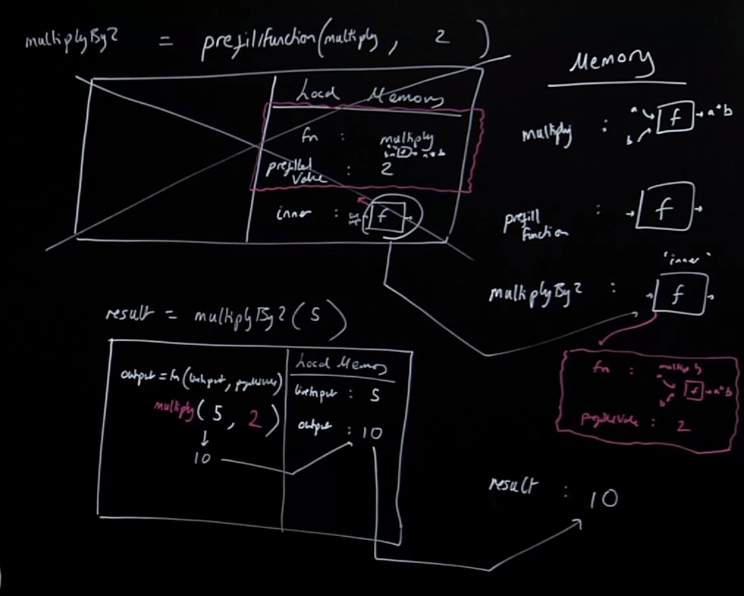 multiplyBy2 = prefillFunction(multiply, 2)
Local Memory
fn : multiply
a b f a*b
prefilled Value : 2
inner : f
result = multiplyBy2(5)
output = fn(liveInput, prefilledValue)
multiply(5, 2)
10
Local Memory
liveInput : 5
output : 10
Memory
multiply : a b f a*b
prefill function : f
"inner"
multiplyBy2 : f
fn : multiply
a b f a*b
prefilledValue : 2
result : 10